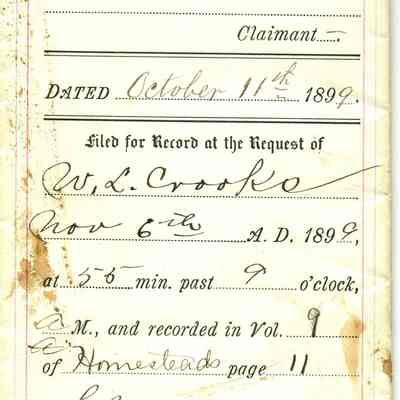 Claimant.
DATED October 11th 1899.
Filed for Record at the Request of
W. L. Crooks
Nov 6th A. D. 1899,
at 55 min. past 9 o'clock,
a M., and recorded in Vol. 9
of Homesteads page 11